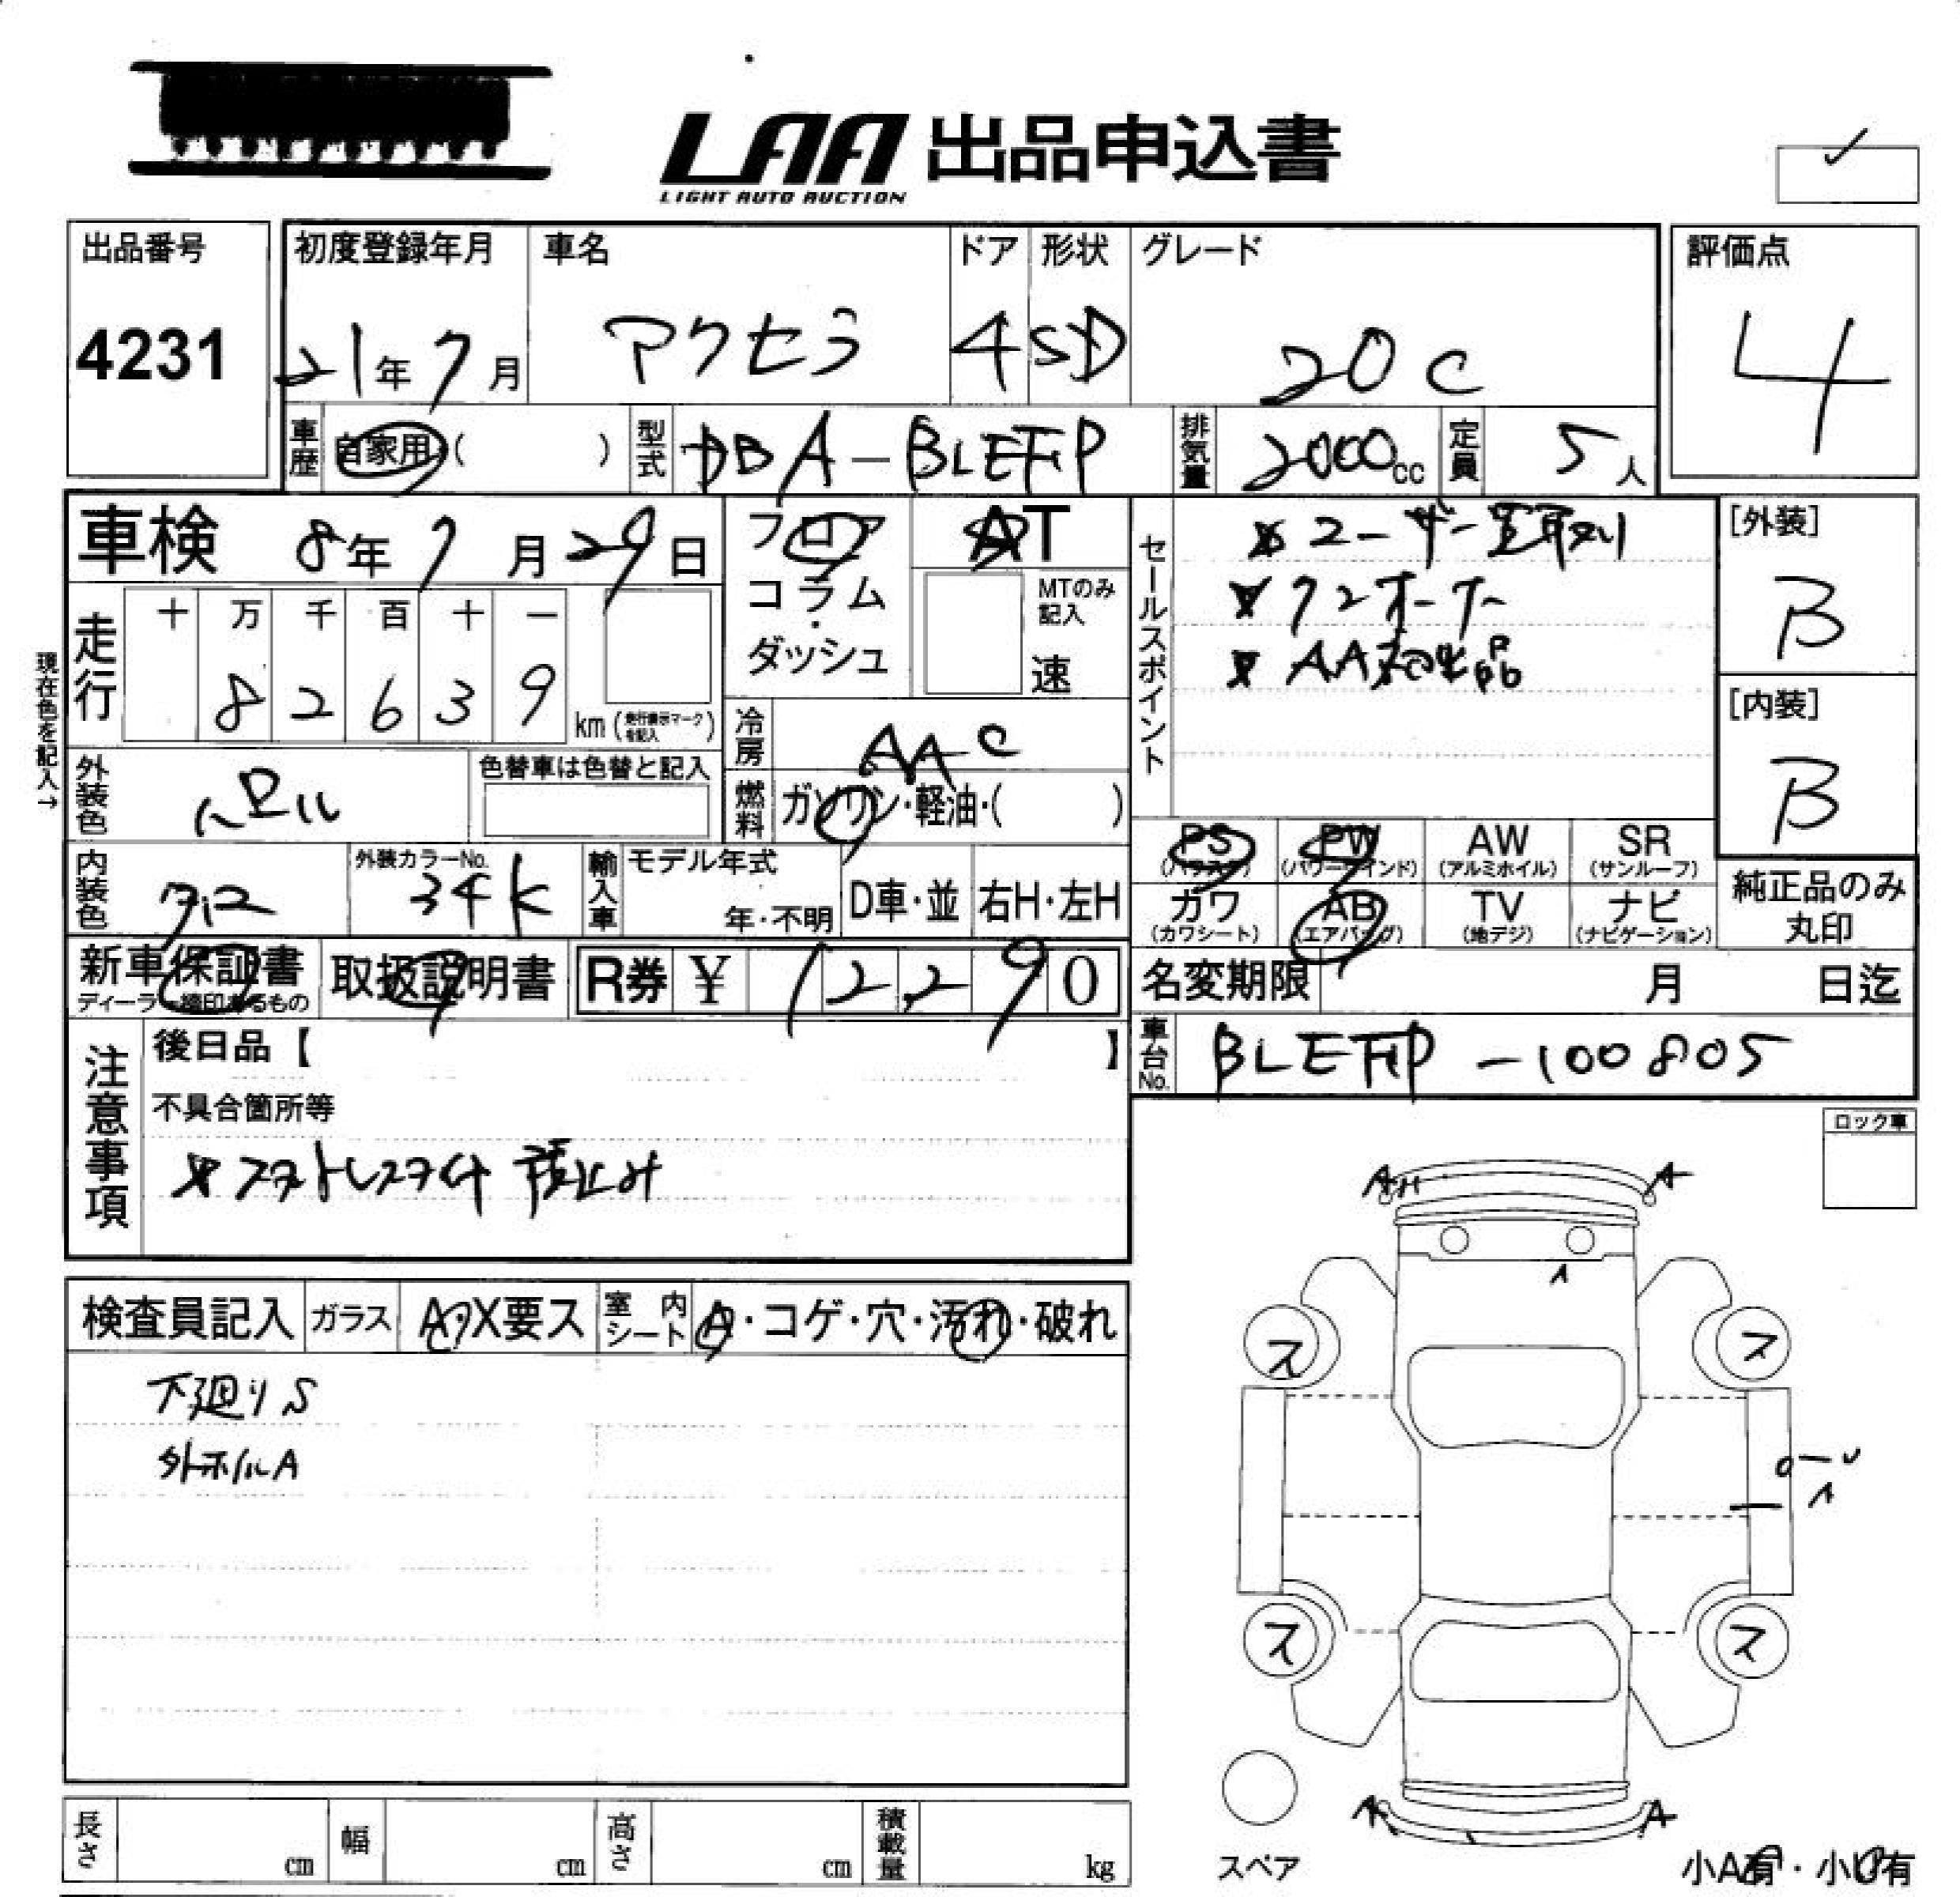 LAA 出品申込書
LIGHT AUTO AUCTION
出品番号
4231
初度登録年月
21年7月
車名
アクセラ
ドア
4
形状
SD
グレード
20C
評価点
4
車歴 自家用 ( )
型式 DBA-BLEFP
排気量 2000cc
定員 5人
車検 8年7月29日
フロア
コラム
ダッシュ
AT
MTのみ記入
速
セールスポイント
※ユーザー買取り
※ワンオーナー
※AA初出品
[外装]
B
[内装]
B
現在色を記入→
走行
十 万 千 百 十 一
8 2 6 3 9
km (走行表示マークを記入)
冷房 AAC
燃料 ガソリン・軽油・( )
外装色 パール
色替車は色替と記入
内装色 クロ
外装カラーNo.
34K
輸入車
モデル年式
年・不明
D車・並
右H・左H
PS (パワステ)
PW (パワーウインド)
AW (アルミホイル)
SR (サンルーフ)
カワ (カワシート)
AB (エアバッグ)
TV (地デジ)
ナビ (ナビゲーション)
純正品のみ
丸印
新車保証書
ディーラー捺印あるもの
取扱説明書
R券 ¥ 12,290
名変期限 月 日迄
車台No. BLEFP-100805
注意事項
後日品【 】
不具合箇所等
※スタットレスタイヤ積込み
ロック車
検査員記入
ガラス A・X要ス
室内シート A・コゲ・穴・汚れ・破れ
下廻りS
外ホイルA
A
A
A
ス
ス
ス
ス
A
A
スペア
小A有・小U有
長さ cm
幅 cm
高さ cm
積載量 kg